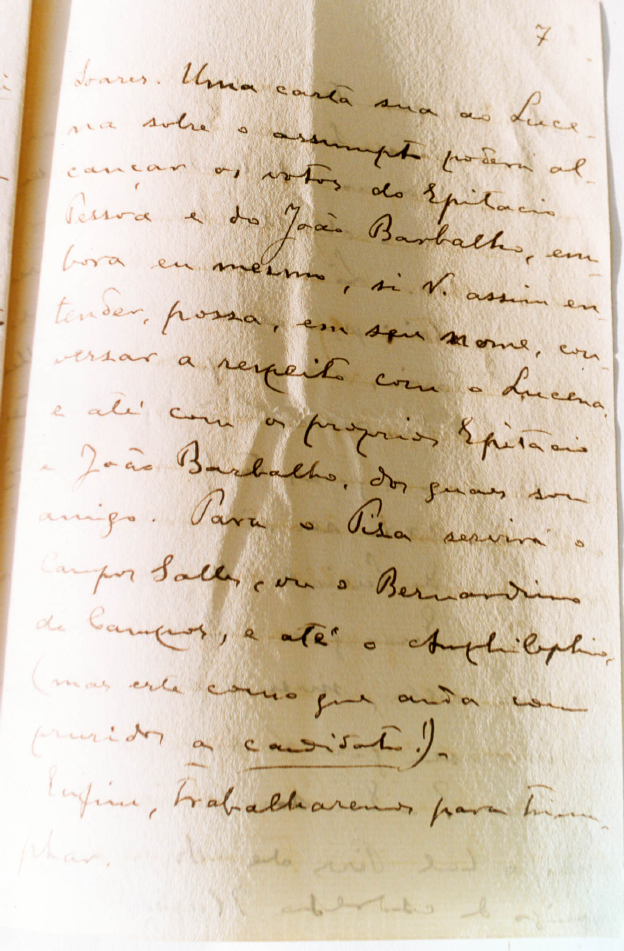 7
Soares. Uma carta sua ao Luce-
na sobre o assumpto poderá al-
cançar os votos do Epitacio
Pessôa e do João Barbalho, em-
bora eu mesmo, si V. assim en-
tender, possa, em seu nome, con-
versar a respeito com o Lucena,
e até com os proprios Epitacio
e João Barbalho, dos quaes sou
amigo. Para o Piza servirá o
Campos Salles, ou o Bernardino
de Campos, e até o Amphilophio,
(mas este como que anda com
pruridos a candidato!).
Enfim, trabalharemos para trium-
phar.